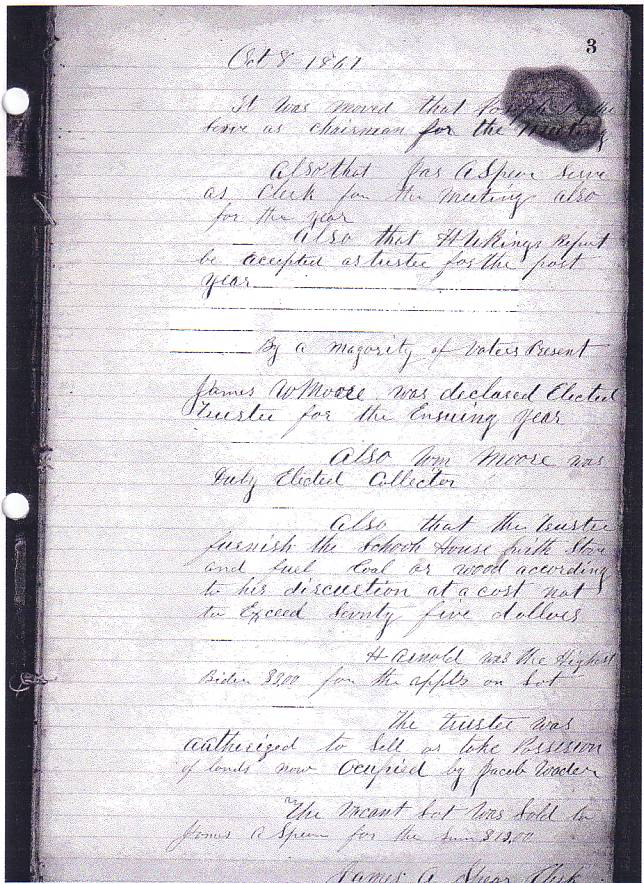 3
Oct 8 1867
It was moved that Joseph
Serve as chairman for the Meeting
Also that Jas A Spear serve
as Clerk for the meeting also
for the year
Also that H W Kings Report
be accepted as trustee for the past
year
By a magority of Voters Present
James W Moore was declared Elected
Trustee for the Ensuing year
Also Wm Moore was
Duly Elected Collector
Also that the trustee
furnish the School House with Stove
and fuel Coal or wood according
to his discretion at a cost not
to Exceed Seventy five dollars
H Arnold was the Highest
Bider $3.00 for the appls on Lot
The trustee was
autherized to Sell or take Possesion
of lands now Ocupied by Jacob
The Vacant Lot was Sold to
James A Spear for the Sum $13.00
James A. Spear Clerk